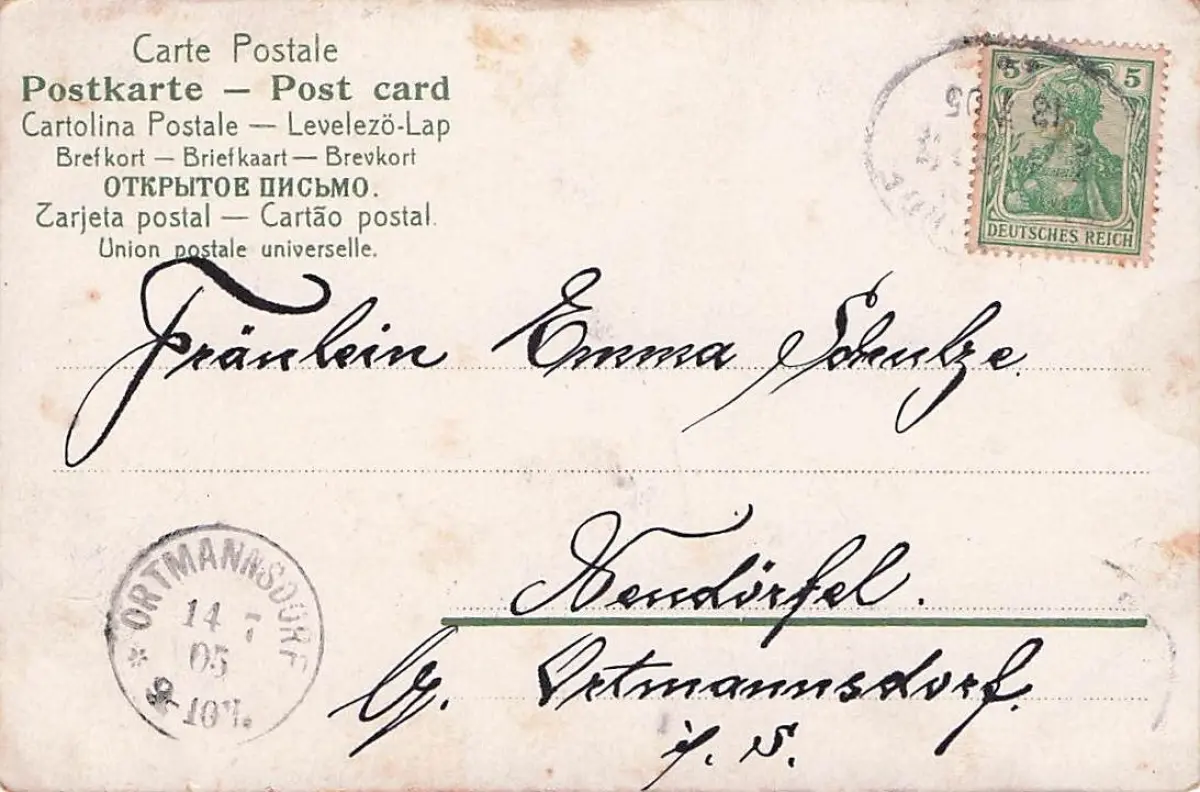 Carte Postale
Postkarte — Post card
Cartolina Postale — Levelező-Lap
Brefkort — Briefkaart — Brevkort
ОТКРЫТОЕ ПИСЬМО.
Tarjeta postal — Cartão postal.
Union postale universelle.
5 5
DEUTSCHES REICH
Fräulein Emma Schulze.
Neudörfel.
G. Ortmannsdorf.
i. S.
ORTMANNSDORF
14 7
05